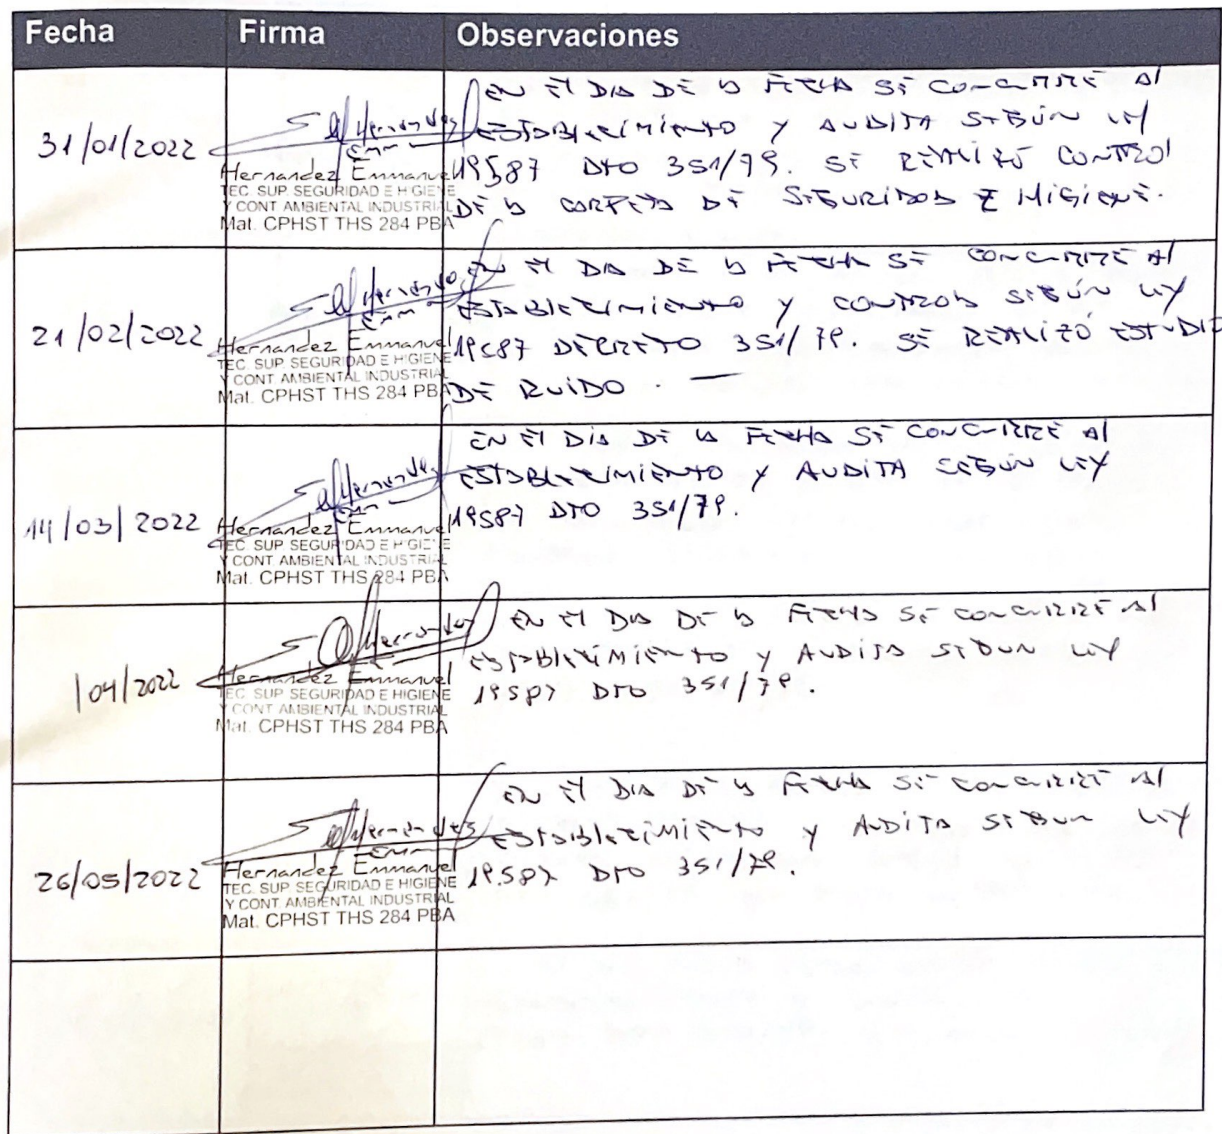 Fecha Firma Observaciones
31/01/2022
Hernandez
Emm
Hernandez Emmanuel
TEC. SUP. SEGURIDAD E HIGIENE
Y CONT. AMBIENTAL INDUSTRIAL
Mat. CPHST THS 284 PBA
EN El DIA DE la FECHA SE CONCURRE Al
ESTABLECIMIENTO Y AUDITA SEGÚN LEY
19587 DTO 351/79. SE REALIZÓ CONTROL
DE la CARPETA DE SEGURIDAD E HIGIENE.
21/02/2022
Hernandez
Emm
Hernandez Emmanuel
TEC. SUP. SEGURIDAD E HIGIENE
Y CONT. AMBIENTAL INDUSTRIAL
Mat. CPHST THS 284 PBA
EN El DIA DE la FECHA SE CONCURRE Al
ESTABLECIMIENTO Y CONTROLA SEGÚN LEY
19587 DECRETO 351/79. SE REALIZÓ ESTUDIO
DE RUIDO. —
14/03/2022
Hernandez
Emm
Hernandez Emmanuel
TEC. SUP. SEGURIDAD E HIGIENE
Y CONT. AMBIENTAL INDUSTRIAL
Mat. CPHST THS 284 PBA
EN El DIA DE LA FECHA SE CONCURRE Al
ESTABLECIMIENTO Y AUDITA SEGÚN LEY
19587 DTO 351/79.
/04/2022
Hernandez
Hernandez Emmanuel
TEC. SUP. SEGURIDAD E HIGIENE
Y CONT. AMBIENTAL INDUSTRIAL
Mat. CPHST THS 284 PBA
EN El DIA DE la FECHA SE CONCURRE Al
ESTABLECIMIENTO Y AUDITA SEGUN LEY
19587 DTO 351/79.
26/05/2022
Hernandez
Emm
Hernandez Emmanuel
TEC. SUP. SEGURIDAD E HIGIENE
Y CONT. AMBIENTAL INDUSTRIAL
Mat. CPHST THS 284 PBA
EN El DIA DE la FECHA SE CONCURRE Al
ESTABLECIMIENTO Y AUDITA SEGUN LEY
19.587 DTO 351/79.